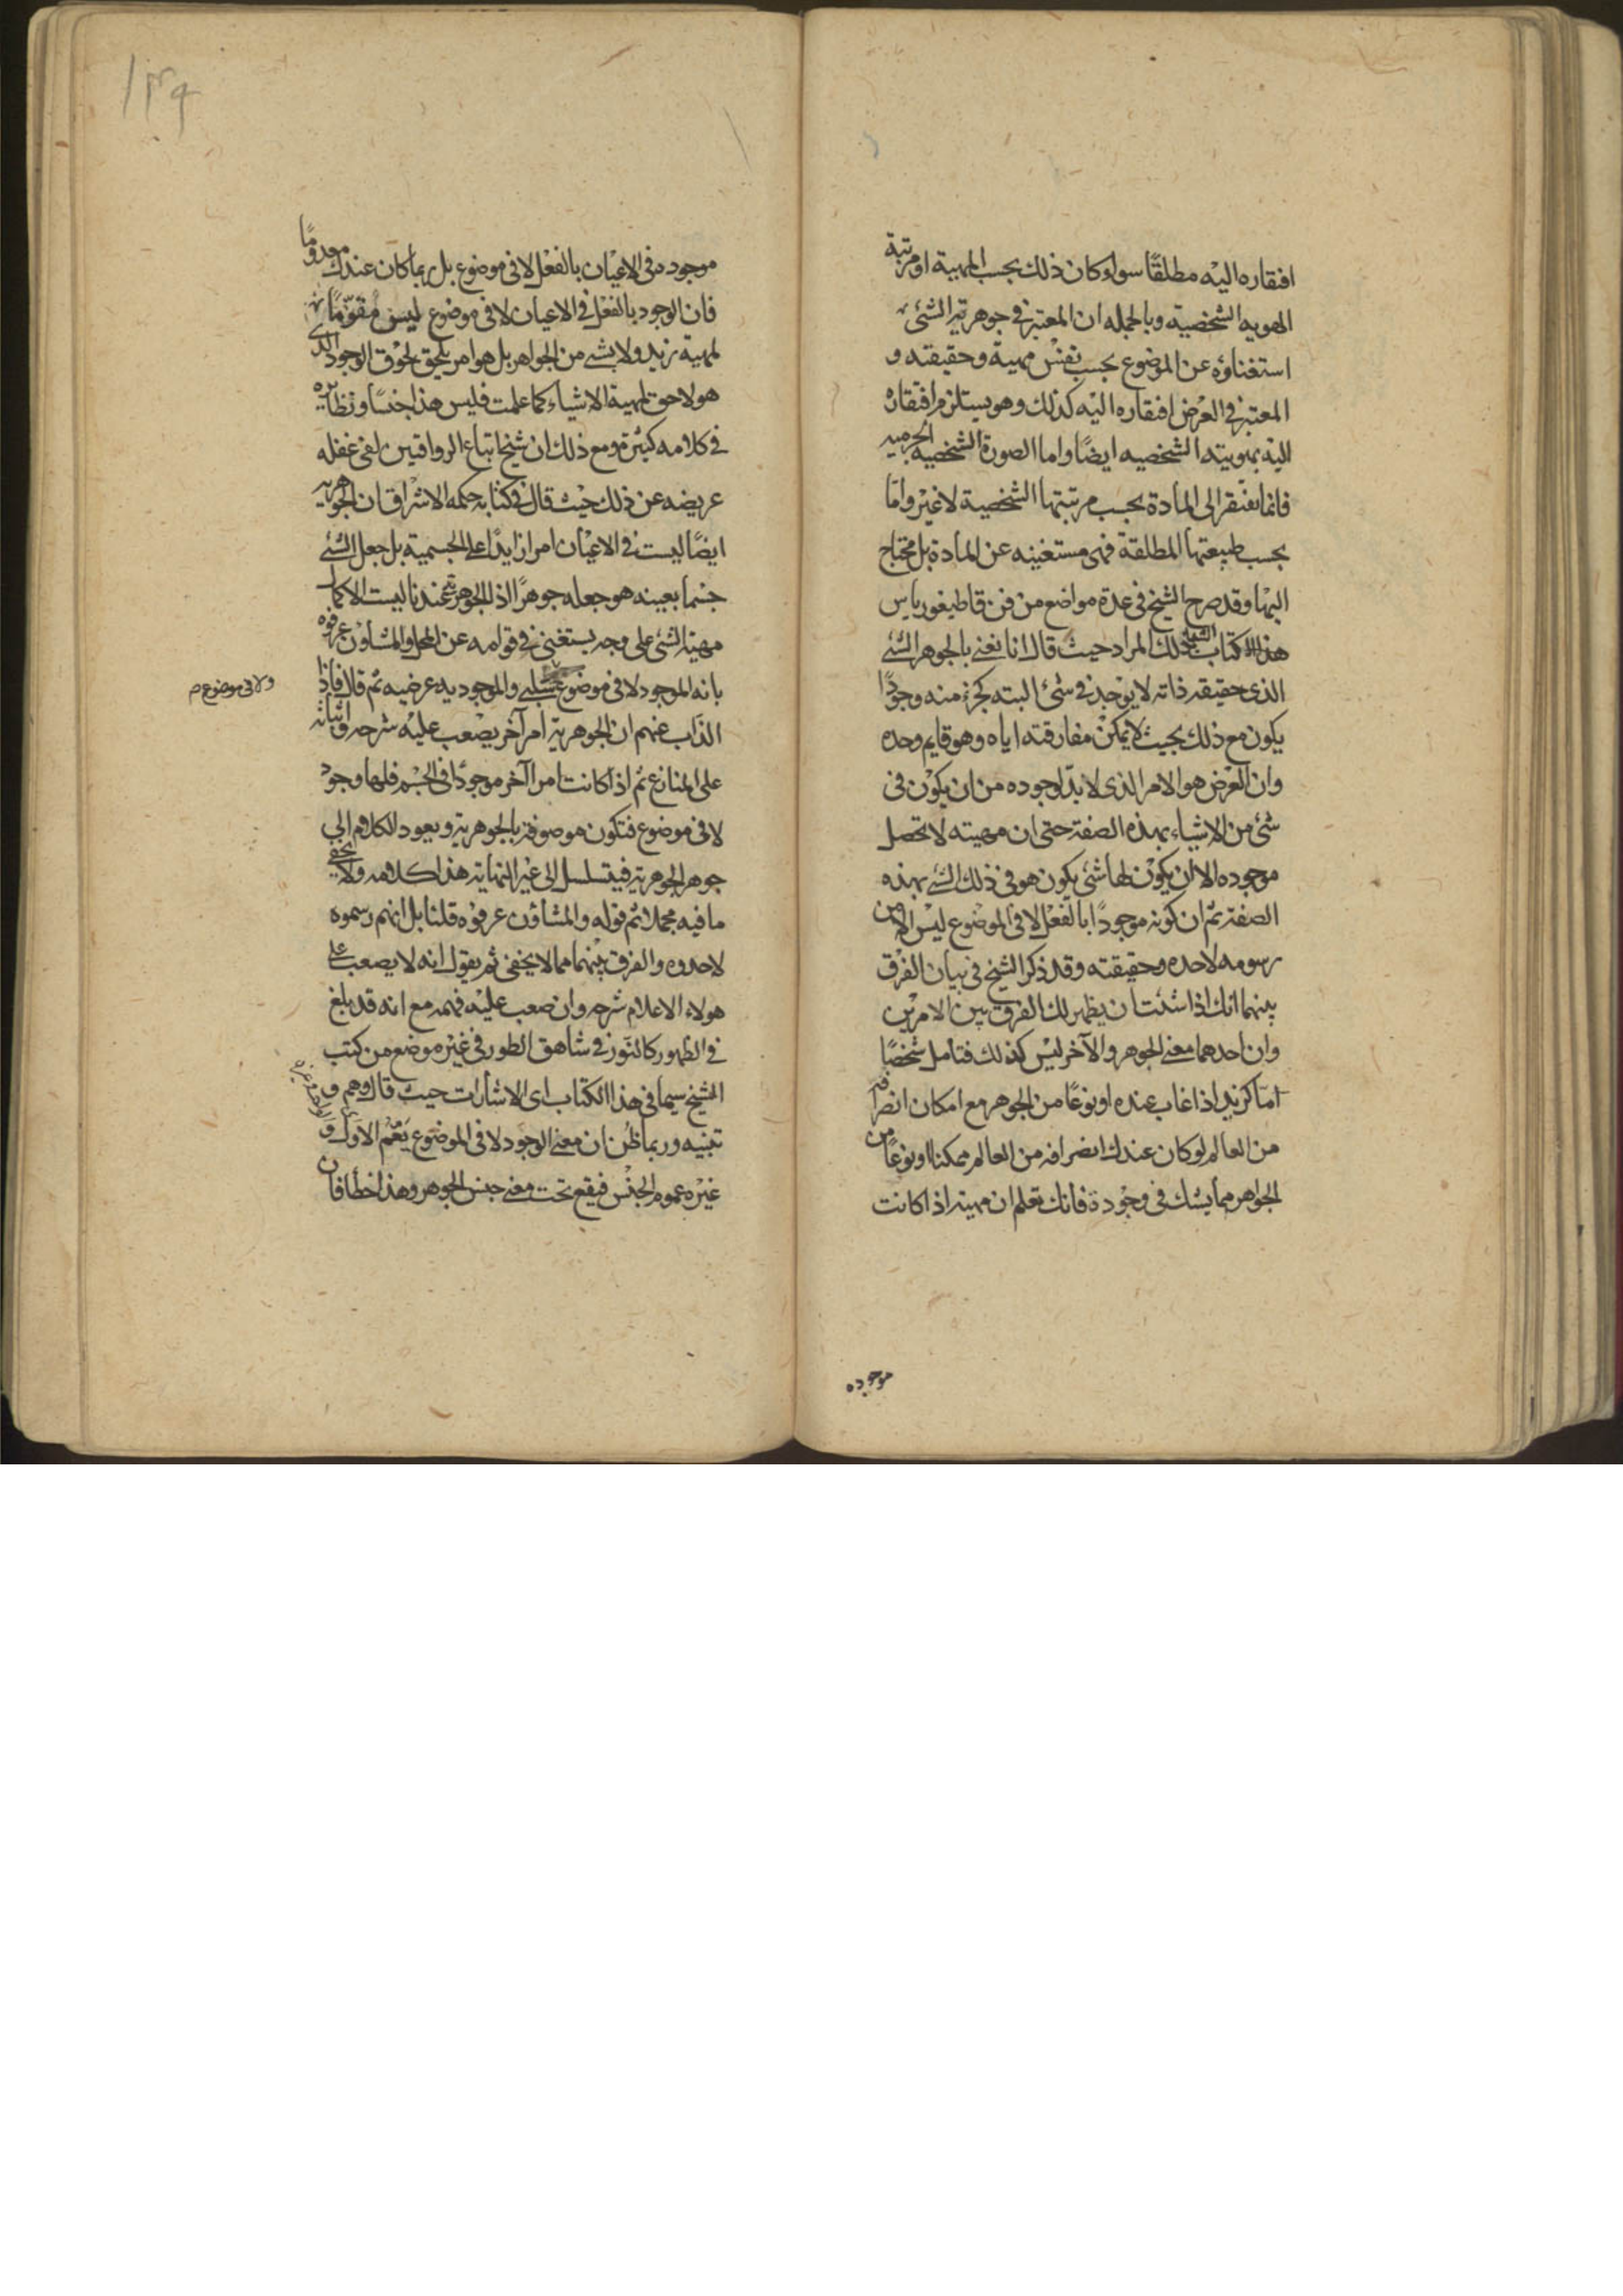 افتقاره اليه مطلقًا سواء كان ذلك بحسب المهية او مرتبة
الهويه الشخصية وبالجمله ان المعتبر فى جوهرية الشئ
استغناؤه عن الموضوع بحسب نفس مهية وحقيقته و
المعتبر فى العرض افتقاره اليه كذلك وهو يستلزم افتقاره
اليه بهويته الشخصيه ايضًا واما الصورة الشخصيه الجرميه
فانما تفتقر الى المادة بحسب مرتبتها الشخصية لا غير واما
بحسب طبيعتها المطلقة فهى مستغنيه عن المادة بل محتاج
اليها وقد صرح الشيخ فى عدة مواضع من فن قاطيغورياس
هذا الكتاب ذلك المراد حيث قال انا نعنى بالجوهر الشئ
الذى حقيقه ذاته لا يوجد فى شئ البته كجزء منه وجودًا
يكون مع ذلك بحيث لا يمكن مفارقته اياه وهو قايم وحده
وان العرض هو الامر الذى لا بدّ لوجوده من ان يكون فى
شئ من الاشياء بهذه الصفة حتى ان مهيته لا تحصل
موجوده الا ان يكون لها شئ يكون هو فى ذلك الشئ بهذه
الصفة ثم ان كونه موجودًا بالفعل لا فى الموضوع ليس الا من
رسومه لا حده وحقيقته وقد ذكر الشيخ فى بيان الفرق
بينهما انك اذا شئت ان يظهر لك الفرق بين الامرين
وان احدهما معنى الجوهر والآخر ليس كذلك فتامل شخصًا
امّا كزيد اذا غاب عنده او نوعًا من الجوهر مع امكان انصرافه
من العالم لو كان عندك انصرافه من العالم ممكنا او نوعًا من
الجواهر مما يشك فى وجوده فانك تعلم ان مهيته اذا كانت
موجوده
١٣٩
موجوده فى الاعيان بالفعل لا فى موضوع بل ربما كان عندك معدومًا
فان الوجود بالفعل فى الاعيان لا فى موضوع ليس مقوّمًا
لمهية زيد ولا بشئ من الجواهر بل هو امر يلحق لحوق الوجود الذى
هو لاحق لمهية الاشياء كما علمت فليس هذا جنسًا ونظايره
فى كلامه كثيرة ومع ذلك ان شيخ اتباع الرواقيين لفى غفله
عريضه عن ذلك حيث قال فى كتابه حكمه الاشراق ان الجوهرية
ايضًا ليست فى الاعيان امرا زايدًا على الجسمية بل جعل الشئ
جسما بعينه هو جعله جوهرًا اذ الجوهرية عندنا ليست الا كمال
مهية الشئ على وجه يستغنى فى قوامه عن المحل والمشاؤن عرفوه
بانه الموجود لا فى موضوع سلبى والموجوديه عرضيه ثم قال فاذا
ولا فى موضوع م
الذاب عنهم ان الجوهرية امر آخر يصعب عليه شرحه واثباته
على المنازع ثم اذا كانت امرا آخر موجودًا فى الجسم فلها وجود
لا فى موضوع فتكون موصوفة بالجوهرية ويعود الكلام الى
جوهر الجوهرية فيتسلسل الى غير النهاية هذا كلامه ولا يخفى
ما فيه مجملا ثم قوله والمشاؤن عرفوه قلنا بل انهم رسموه
لا حدوه والفرق بينهما مما لا يخفى ثم يقول انه لا يصعب على
هولاء الاعلام شرحه وان صعب عليه فهمه مع انه قد بلغ
فى الظهور كالنور فى شاهق الطور فى غير موضع من كتب
الشيخ سيما فى هذا الكتاب اى الاشارات حيث قال وهم و
تنبيه وربما ظن ان معنى الوجود لا فى الموضوع يعم الاول و
غيره عموم الجنس فيقع تحت معنى جنس الجوهر وهذا خطأ فان